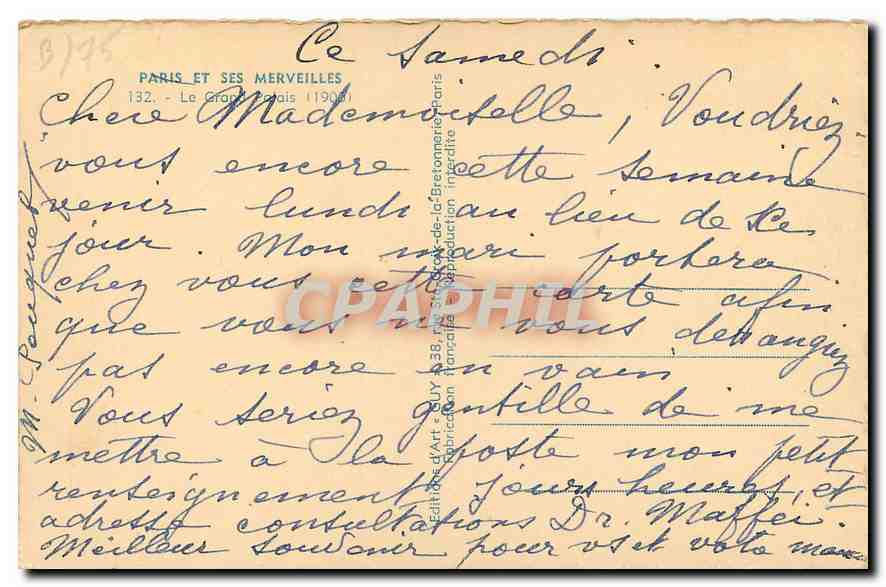 B/75
Ce Samedi.
PARIS ET SES MERVEILLES
132. - Le Grand Palais (1900)
Chere Mademoiselle, Voudriez-
vous encore cette semaine
venir lundi au lieu de ce
jour. Mon mari portera
chez vous cette carte afin
que vous ne vous derangiez
pas encore en vain.
Vous seriez gentille de me
mettre à la poste mon petit
renseignement jours heures, et
adresse consultations Dr. Maffei.
Meilleur souvenir pour vs et votre
Editions d'Art « GUY » 38, rue Ste-Croix-de-la-Bretonnerie, Paris
Fabrication française - Reproduction interdite
CPAPHIL